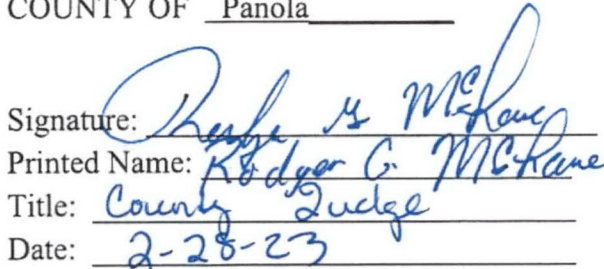 COUNTY OF Panola
Signature: Rodger G McLane
Printed Name: Rodger G. McLane
Title: County Judge
Date: 2-28-23